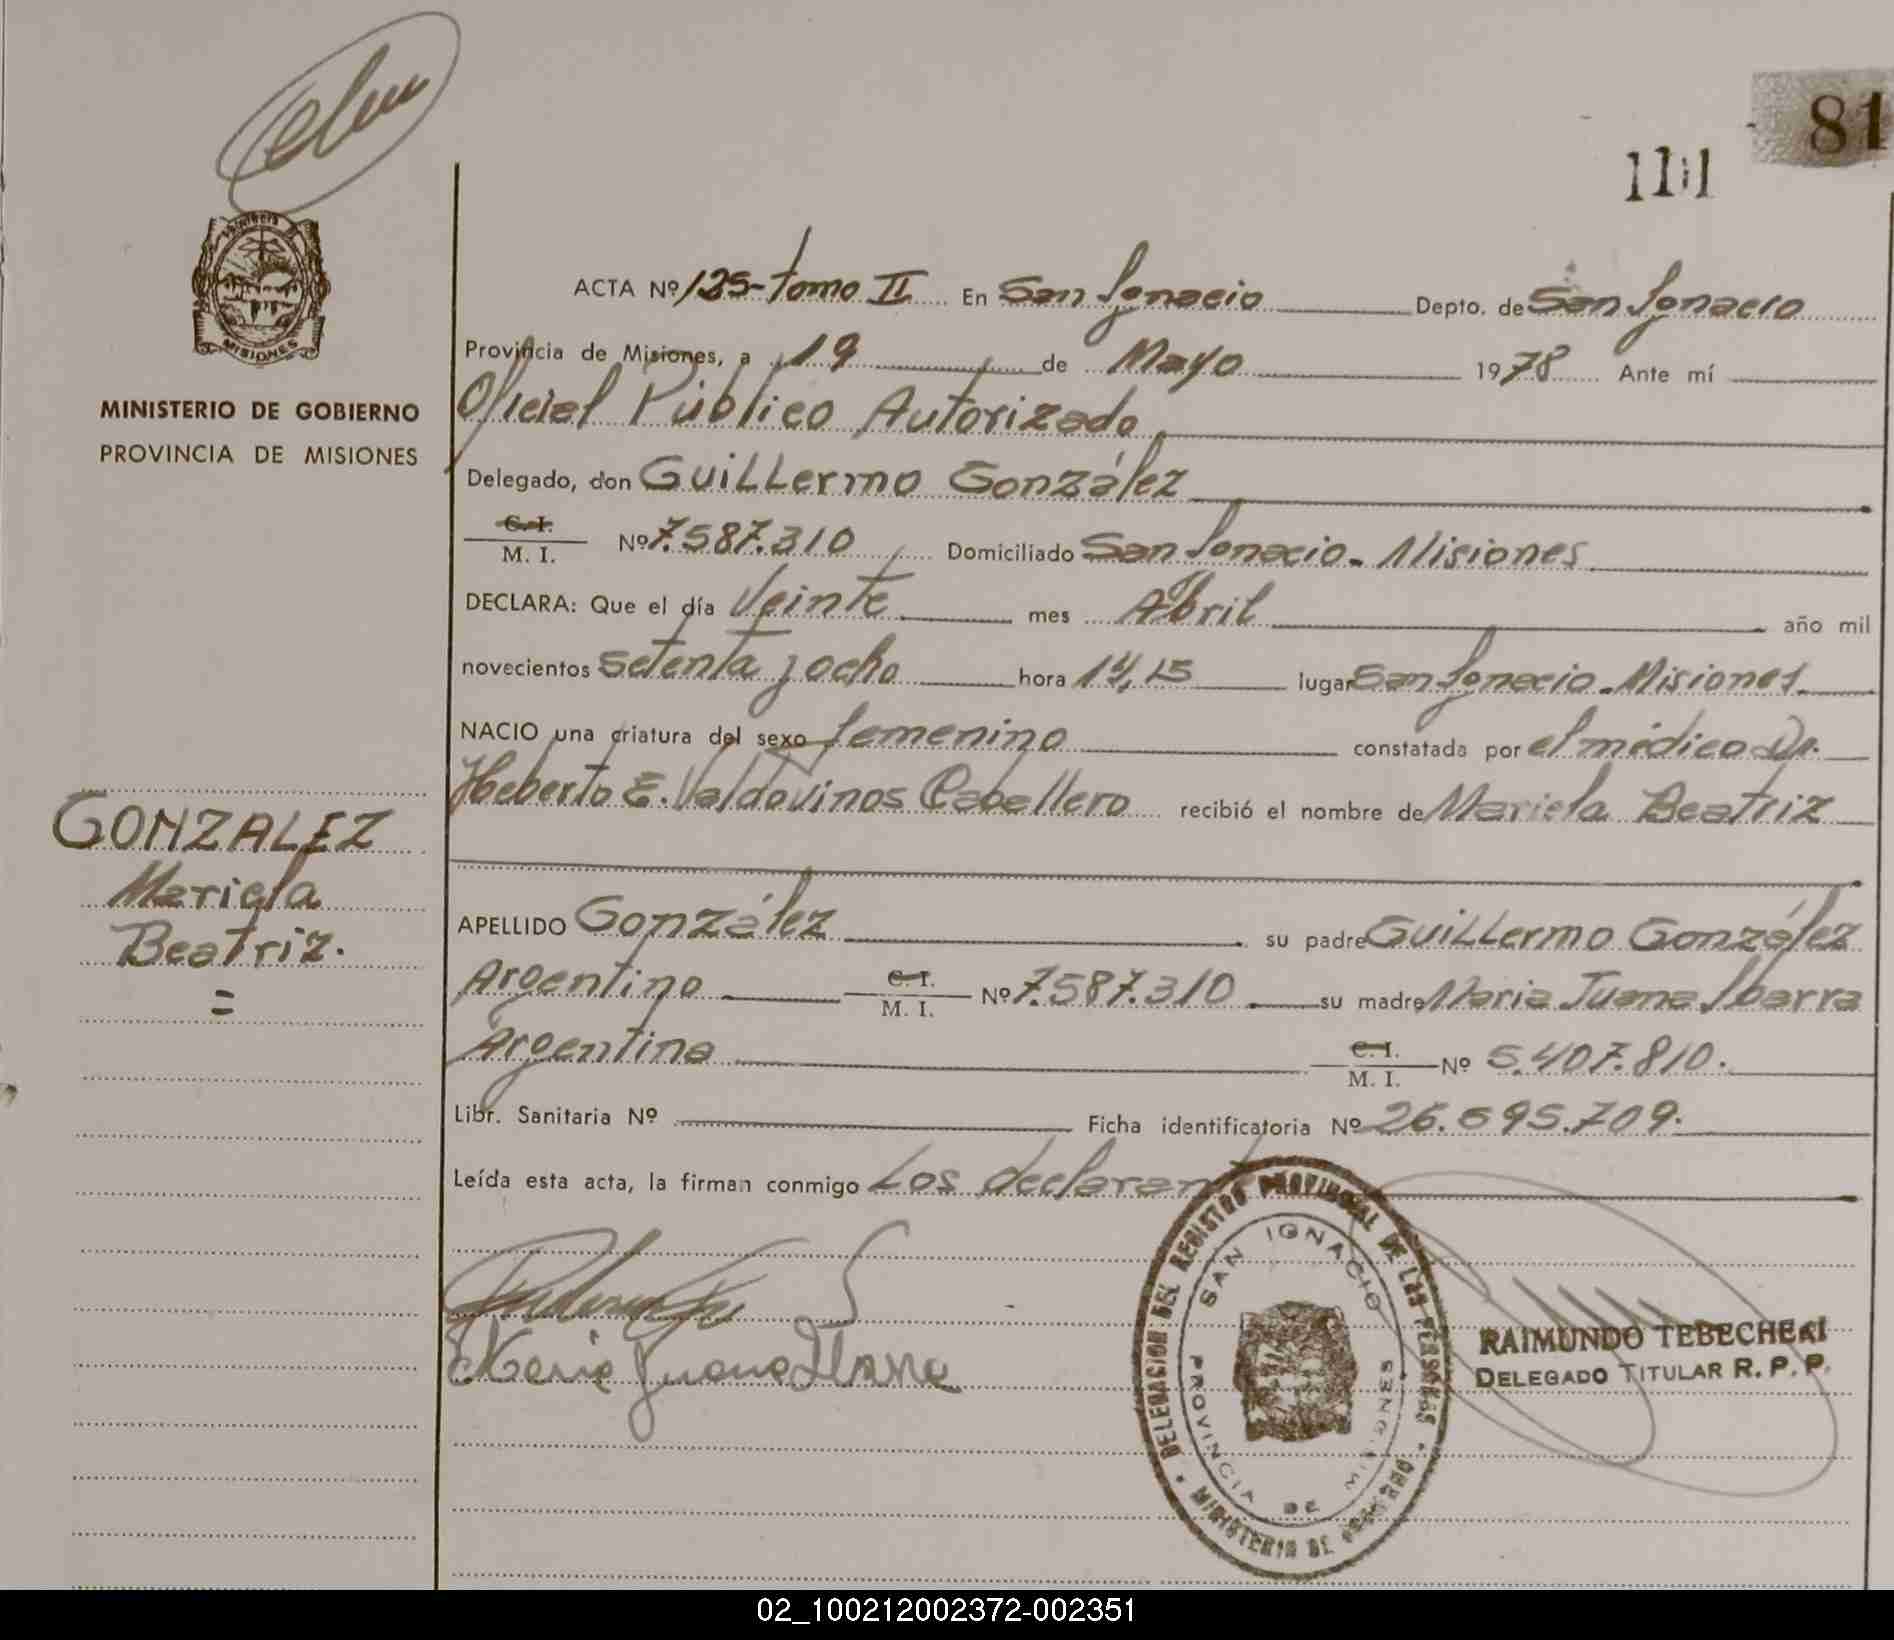 81
111
ACTA Nº 125-tomo II En San Ignacio Depto. de San Ignacio
Provincia de Misiones, a 19 de Mayo 1978 Ante mí
Oficial Público Autorizado
Delegado, don Guillermo González
C. I.
M. I. Nº 7.587.310 Domiciliado San Ignacio - Misiones
DECLARA: Que el día Veinte mes Abril año mil
novecientos setenta y ocho hora 14,15 lugar San Ignacio - Misiones
NACIO una criatura del sexo femenino constatada por el médico Dr.
Heberto E. Valdovinos Caballero recibió el nombre de Mariela Beatriz
APELLIDO González su padre Guillermo González
Argentino C. I. M. I. Nº 7.587.310 su madre Maria Juana Ibarra
Argentina C. I. M. I. Nº 5.407.810.
Libr. Sanitaria Nº Ficha identificatoria Nº 26.695.709.
Leída esta acta, la firman conmigo Los declarantes
MISIONES
MINISTERIO DE GOBIERNO
PROVINCIA DE MISIONES
GONZALEZ
Mariela
Beatriz.
=
Maria Juana Ibarra
DELEGACION DEL REGISTRO PROVINCIAL DE LAS PERSONAS
MINISTERIO DE GOBIERNO
SAN IGNACIO
PROVINCIA DE MISIONES
RAIMUNDO TEBECHERI
DELEGADO TITULAR R. P. P.
02_100212002372-002351